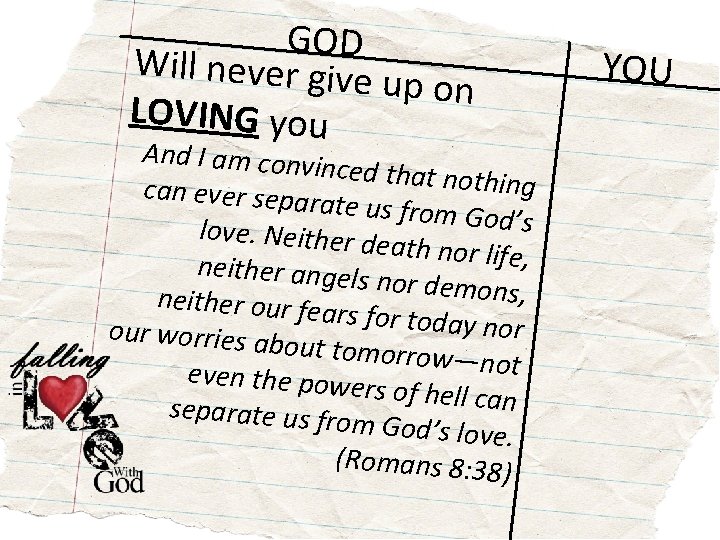 GOD
YOU
Will never give up on
LOVING you
And I am convinced that nothing
can ever separate us from God's
love. Neither death nor life,
neither angels nor demons,
neither our fears for today nor
our worries about tomorrow—not
even the powers of hell can
separate us from God's love.
(Romans 8:38)
falling
in
LOVE
With
God